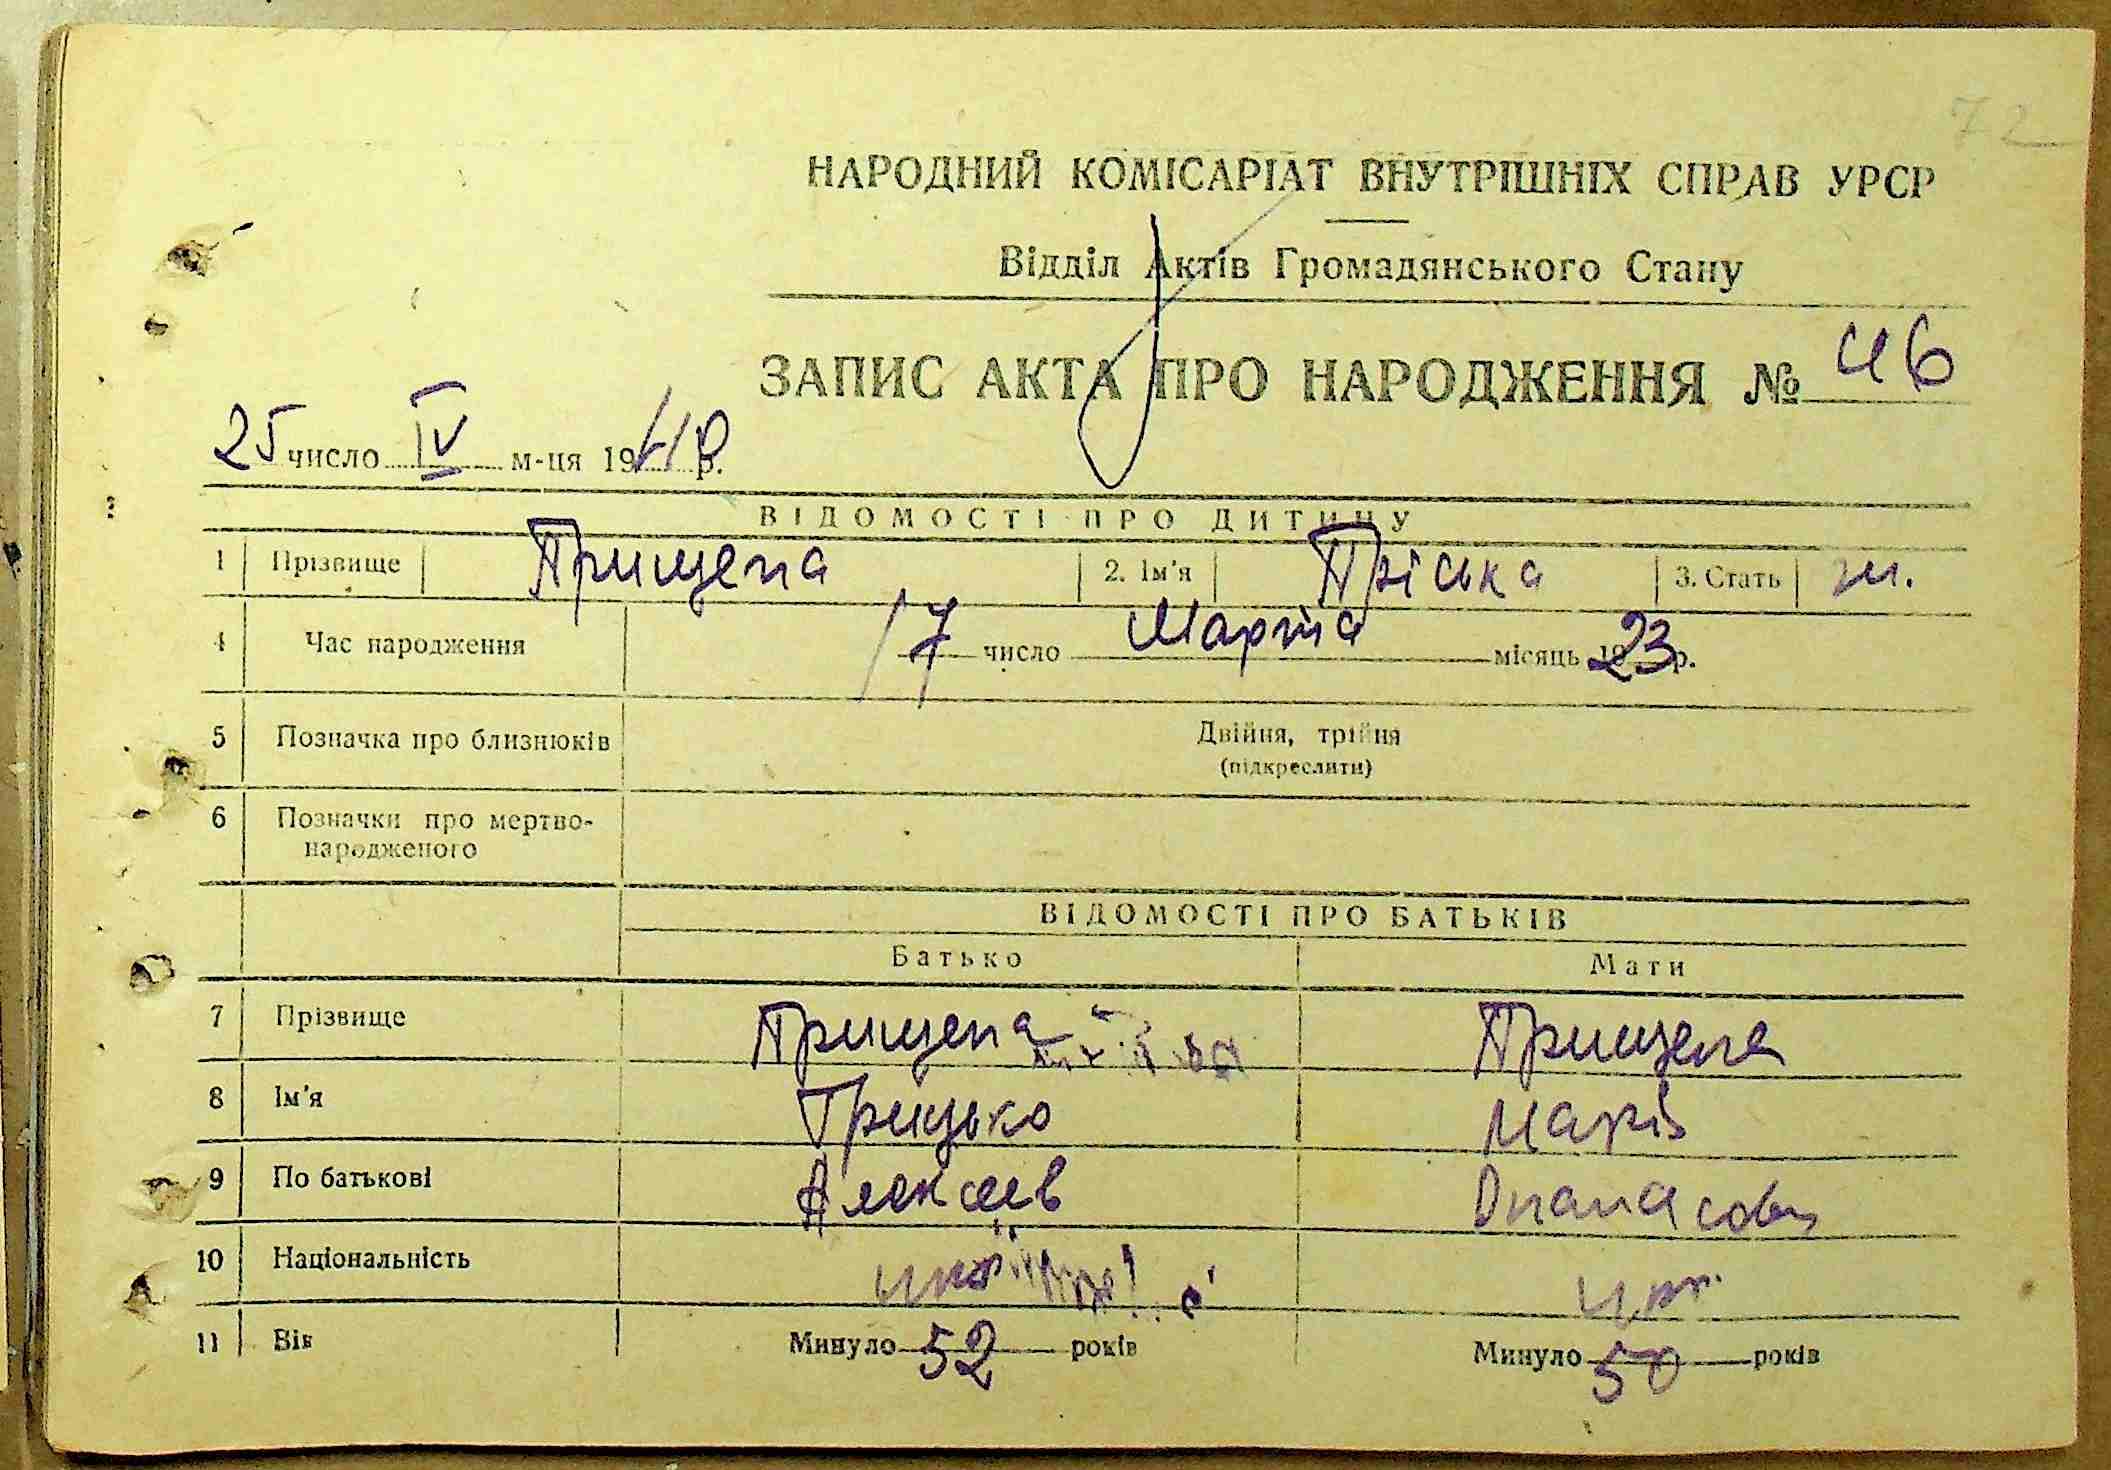 72
НАРОДНИЙ КОМІСАРІАТ ВНУТРІШНІХ СПРАВ УРСР
Відділ Актів Громадянського Стану
ЗАПИС АКТА ПРО НАРОДЖЕННЯ № 46
25 число IV м-ця 1940 р.
ВІДОМОСТІ ПРО ДИТИНУ
1 Прізвище Прищепа 2. Ім'я Пріська 3. Стать ж.
4 Час народження 17 число Марта місяць 1923 р.
5 Позначка про близнюків Двійня, трійня
(підкреслити)
6 Позначки про мертво-
народженого
ВІДОМОСТІ ПРО БАТЬКІВ
Батько Мати
7 Прізвище Прищепа Прищепа
8 Ім'я Грицько Марія
9 По батькові Алексеев Опанасовн
10 Національність укр. укр.
11 Вік Минуло 52 років Минуло 50 років